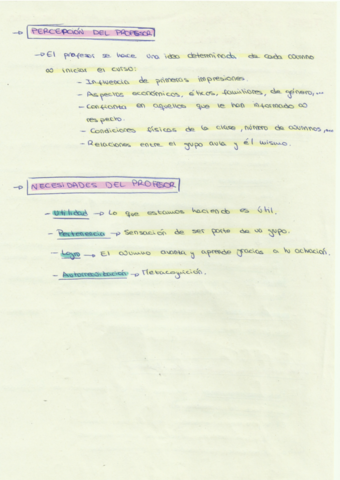 → PERCEPCIÓN DEL PROFESOR
→ El profesor se hace una idea determinada de cada alumno
al iniciar el curso:
- Influencia de primeras impresiones.
- Aspectos económicos, éticos, familiares, de género,...
- Confianza en aquellos que le han informado al
respecto.
- Condiciones físicas de la clase, número de alumnos,...
- Relaciones entre el grupo aula y él mismo.
→ NECESIDADES DEL PROFESOR
- Utilidad → Lo que estamos haciendo es útil.
- Pertenencia → Sensación de ser parte de un grupo.
- Logro → El alumno avanza y aprende gracias a tu actuación.
- Autorrealización → Metacognición.